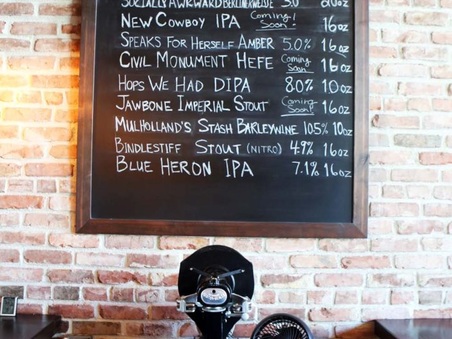 SOCIALLY AWKWARD BERLINERWEISSE 5.0
NEW COWBOY IPA Coming Soon! 16oz
SPEAKS FOR HERSELF AMBER 5.0% 16oz
CIVIL MONUMENT HEFE Coming Soon 16oz
HOPS WE HAD DIPA 8.0% 10oz
JAWBONE IMPERIAL STOUT Coming Soon! 16oz
MULHOLLAND'S STASH BARLEYWINE 10.5% 10oz
BINDLESTIFF STOUT (NITRO) 4.9% 16oz
BLUE HERON IPA 7.1% 16oz